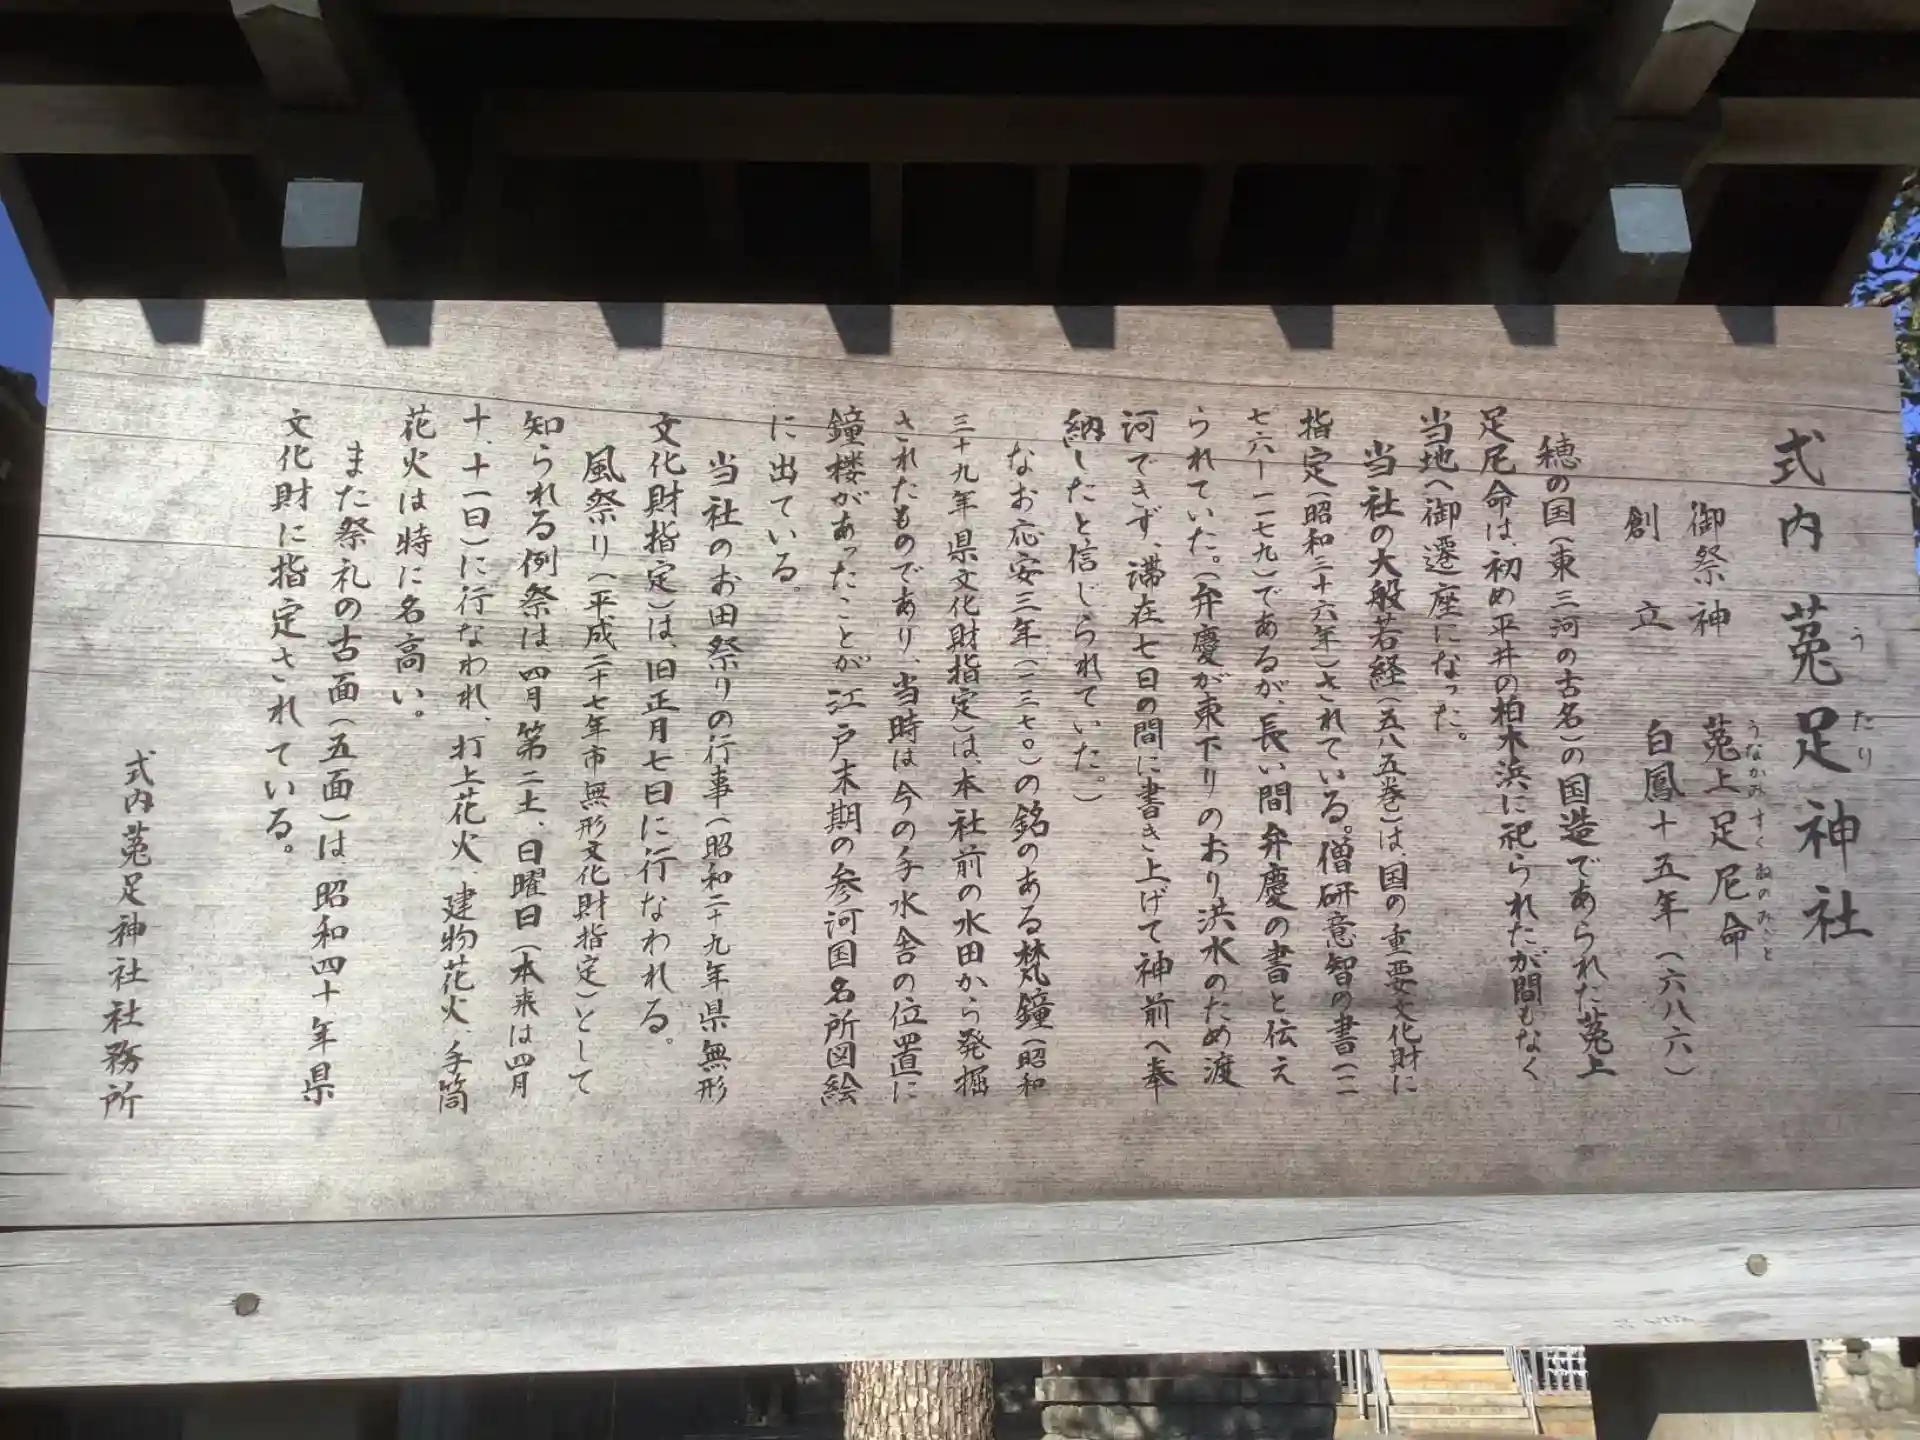 式内菟足神社
うたり
御祭神 菟上足尼命
うなかみすくねのみこと
創立 白鳳十五年(六八六)
穂の国(東三河の古名)の国造であられた菟上
足尼命は、初め平井の柏木浜に祀られたが間もなく
当地へ御遷座になった。
当社の大般若経(五八五巻)は、国の重要文化財に
指定(昭和三十六年)されている。僧研意智の書(一一
七六ー一一七九)であるが、長い間弁慶の書と伝え
られていた。(弁慶が東下りのおり洪水のため渡
河できず、滞在七日の間に書き上げて神前へ奉
納したと信じられていた。)
なお応安三年(一三七〇)の銘のある梵鐘(昭和
三十九年県文化財指定)は、本社前の水田から発掘
されたものであり、当時は今の手水舎の位置に
鐘楼があったことが江戸末期の参河国名所図絵
に出ている。
当社のお田祭りの行事(昭和二十九年県無形
文化財指定)は、旧正月七日に行なわれる。
風祭り(平成二十七年市無形文化財指定)として
知られる例祭は四月第二土、日曜日(本来は四月
十、十一日)に行なわれ、打上花火、建物花火、手筒
花火は特に名高い。
また祭礼の古面(五面)は、昭和四十年県
文化財に指定されている。
式内菟足神社社務所